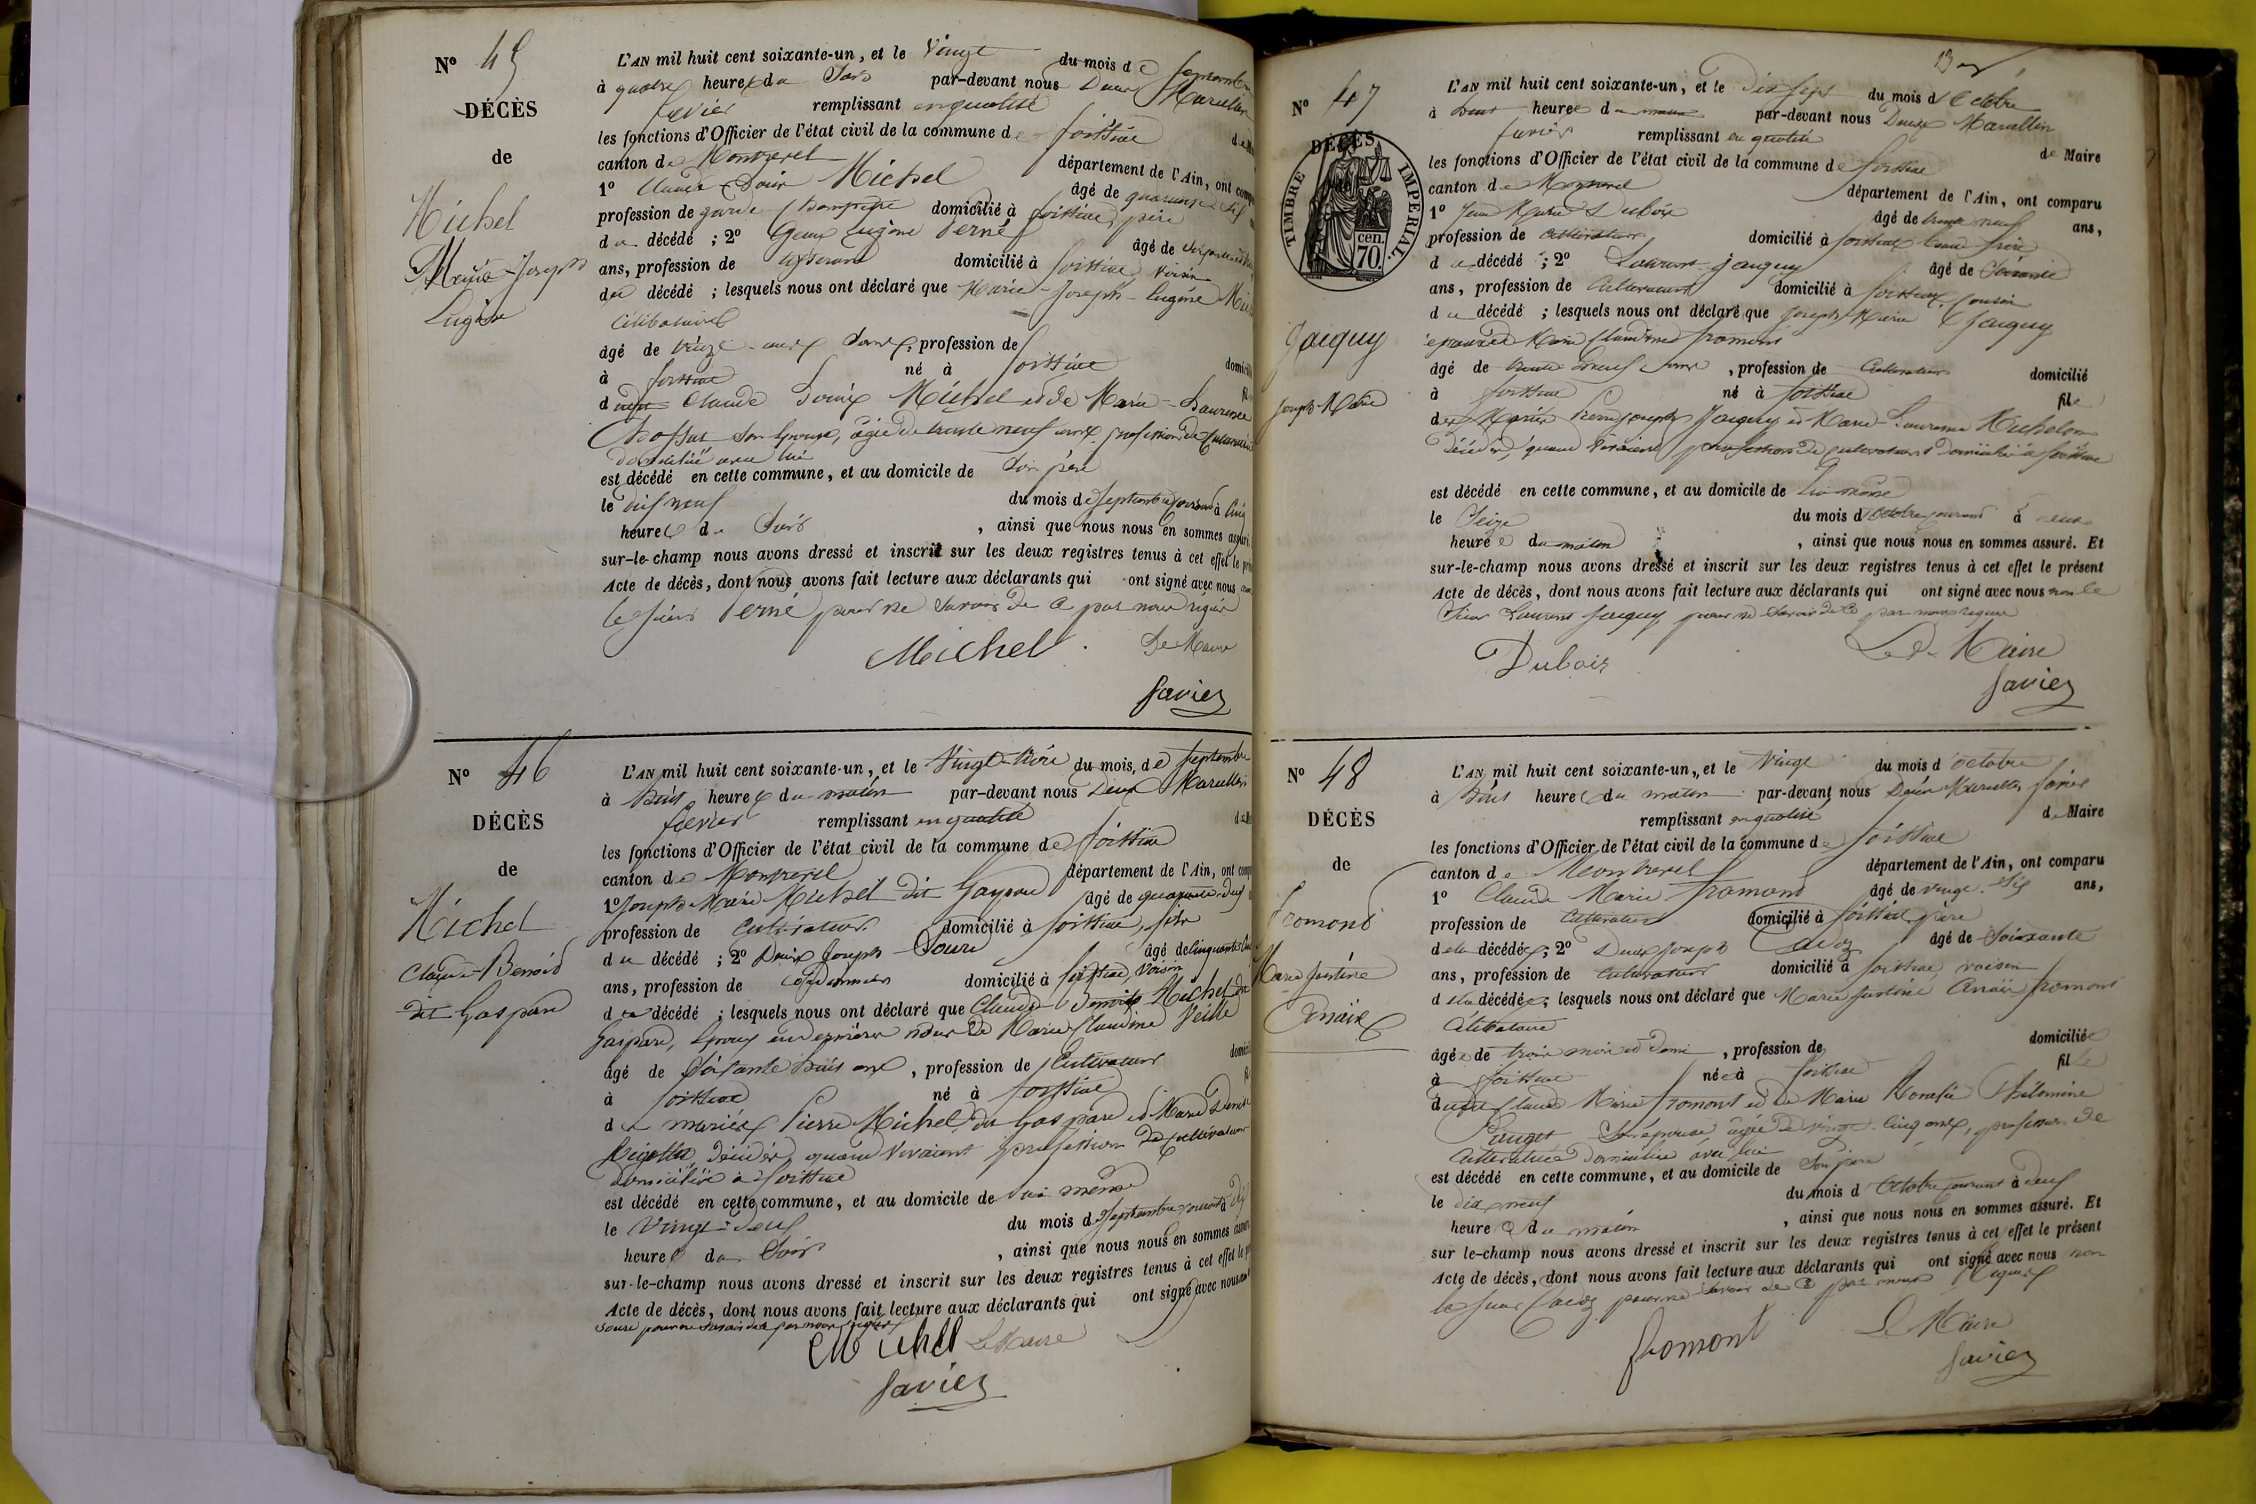 N° 45
DÉCÈS
de
Michel
Marie-Joseph
Eugène
L'AN mil huit cent soixante-un, et le Vingt du mois de Septembre
à quatre heures du Soir par-devant nous Marcellin
favier remplissant en qualité
les fonctions d'Officier de l'état civil de la commune de foissiat
canton de Montrevel département de l'Ain, ont
1° Claude Michel âgé de quarante
profession de garde Champêtre domicilié à foissiat, père
du décédé ; 2° Eugène Perné âgé de
ans, profession de domicilié à foissiat, voisin
du décédé ; lesquels nous ont déclaré que Marie-Joseph-Eugène
Célibataire
âgé de ans, profession de
à foissiat né à foissiat
Claude Michel et de Marie-Laurence
son épouse, âgée de trente neuf ans, profession de
domiciliée avec lui
est décédé en cette commune, et au domicile de Son père
le dix neuf du mois de Septembre courant à Cinq
heures du Soir, ainsi que nous nous en sommes
sur-le-champ nous avons dressé et inscrit sur les deux registres tenus à cet effet le
Acte de décès, dont nous avons fait lecture aux déclarants qui ont signé avec nous
le sieur Perné pour ne savoir de ce par nous requis
Michel. Le Maire
favier
N° 46
DÉCÈS
de
Michel
Claude-Benoit
dit Gaspard
L'AN mil huit cent soixante-un, et le Vingt-trois du mois de Septembre
à huit heures du matin par-devant nous Marcellin
favier remplissant en qualité
les fonctions d'Officier de l'état civil de la commune de foissiat
canton de Montrevel département de l'Ain, ont
1° Joseph-Marie Michel dit Gaspard âgé de quarante-deux
profession de Cultivateur domicilié à foissiat, fils
du décédé ; 2° Joseph âgé de Cinquante
ans, profession de domicilié à foissiat, voisin
du décédé ; lesquels nous ont déclaré que Claude-Benoit Michel dit
Gaspard, époux en dernières noces de Marie Claudine
âgé de soixante huit ans, profession de Cultivateur
à foissiat né à foissiat
d mariés Pierre Michel dit Gaspard et Marie
décédés, quand vivaient profession de Cultivateurs
domiciliés à foissiat
est décédé en cette commune, et au domicile de lui même
le Vingt-deux du mois de Septembre courant à
heures du Soir, ainsi que nous nous en sommes
sur-le-champ nous avons dressé et inscrit sur les deux registres tenus à cet effet le
Acte de décès, dont nous avons fait lecture aux déclarants qui ont signé avec nous
pour ne savoir de ce par nous requis
Michel Le Maire
favier
N° 47
DÉCÈS
TIMBRE IMPERIAL
70 cen.
Jauguy
Joseph-Marie
L'AN mil huit cent soixante-un, et le Dix sept du mois d'Octobre
à heures du par-devant nous Marcellin
favier remplissant en qualité de Maire
les fonctions d'Officier de l'état civil de la commune de foissiat
canton de Montrevel département de l'Ain, ont comparu
1° Jean Marie Dubois âgé de trente neuf ans,
profession de Cultivateur domicilié à foissiat beau frère
du décédé ; 2° Laurent Jauguy âgé de Soixante
ans, profession de Cultivateur domicilié à foissiat, cousin
du décédé ; lesquels nous ont déclaré que Joseph Marie Jauguy
époux de Marie Claudine fromont
âgé de trente ans, profession de Cultivateur domicilié
à foissiat né à foissiat fils
des Mariés Pierre Joseph Jauguy et Marie-Laurence
décédés, quand vivaient profession de cultivateurs domiciliés à foissiat
est décédé en cette commune, et au domicile de lui même
le Seize du mois d'Octobre courant à
heures du matin, ainsi que nous nous en sommes assuré. Et
sur-le-champ nous avons dressé et inscrit sur les deux registres tenus à cet effet le présent
Acte de décès, dont nous avons fait lecture aux déclarants qui ont signé avec nous non le
sieur Laurent Jauguy pour ne savoir de ce par nous requis
Dubois Le Maire
favier
N° 48
DÉCÈS
de
Fromont
Marie Justine
Anaïs
L'AN mil huit cent soixante-un, et le Vingt du mois d'octobre
à huit heures du matin par-devant nous Marcellin favier
remplissant en qualité de Maire
les fonctions d'Officier de l'état civil de la commune de foissiat
canton de Montrevel département de l'Ain, ont comparu
1° Claude Marie Fromont âgé de vingt-six ans,
profession de Cultivateur domicilié à foissiat, père
de la décédée ; 2° Joseph Cadoz âgé de Soixante
ans, profession de Cultivateur domicilié à foissiat, voisin
de la décédée ; lesquels nous ont déclaré que Marie Justine Anaïs fromont
Célibataire
âgée de trois mois et demi, profession de domiciliée
à foissiat née à foissiat fille
Claude Marie Fromont et de Marie Philomine
Son épouse âgée de vingt-cinq ans, profession de
Cultivatrice domiciliée avec lui
est décédé en cette commune, et au domicile de Son père
le dix neuf du mois d'Octobre courant à deux
heures du matin, ainsi que nous nous en sommes assuré. Et
sur le-champ nous avons dressé et inscrit sur les deux registres tenus à cet effet le présent
Acte de décès, dont nous avons fait lecture aux déclarants qui ont signé avec nous non
le sieur Cadoz pour ne savoir de ce par nous requis
fromont Le Maire
favier